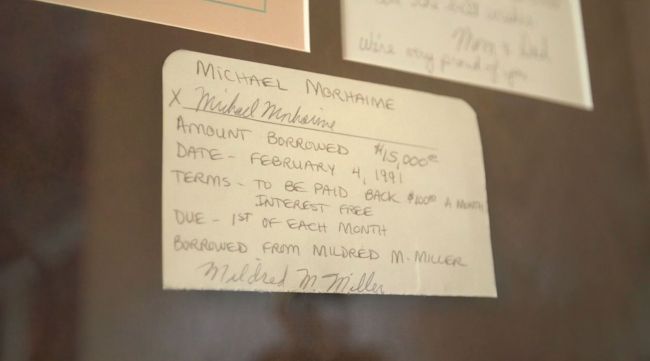 We're very proud of you
Mom & Dad
MICHAEL MORHAIME
X Michael Morhaime
AMOUNT BORROWED $15,000⁰⁰
DATE - FEBRUARY 4, 1991
TERMS - TO BE PAID BACK $100⁰⁰ A MONTH
INTEREST FREE
DUE - 1ST OF EACH MONTH
BORROWED FROM MILDRED M. MILLER
Mildred M. Miller